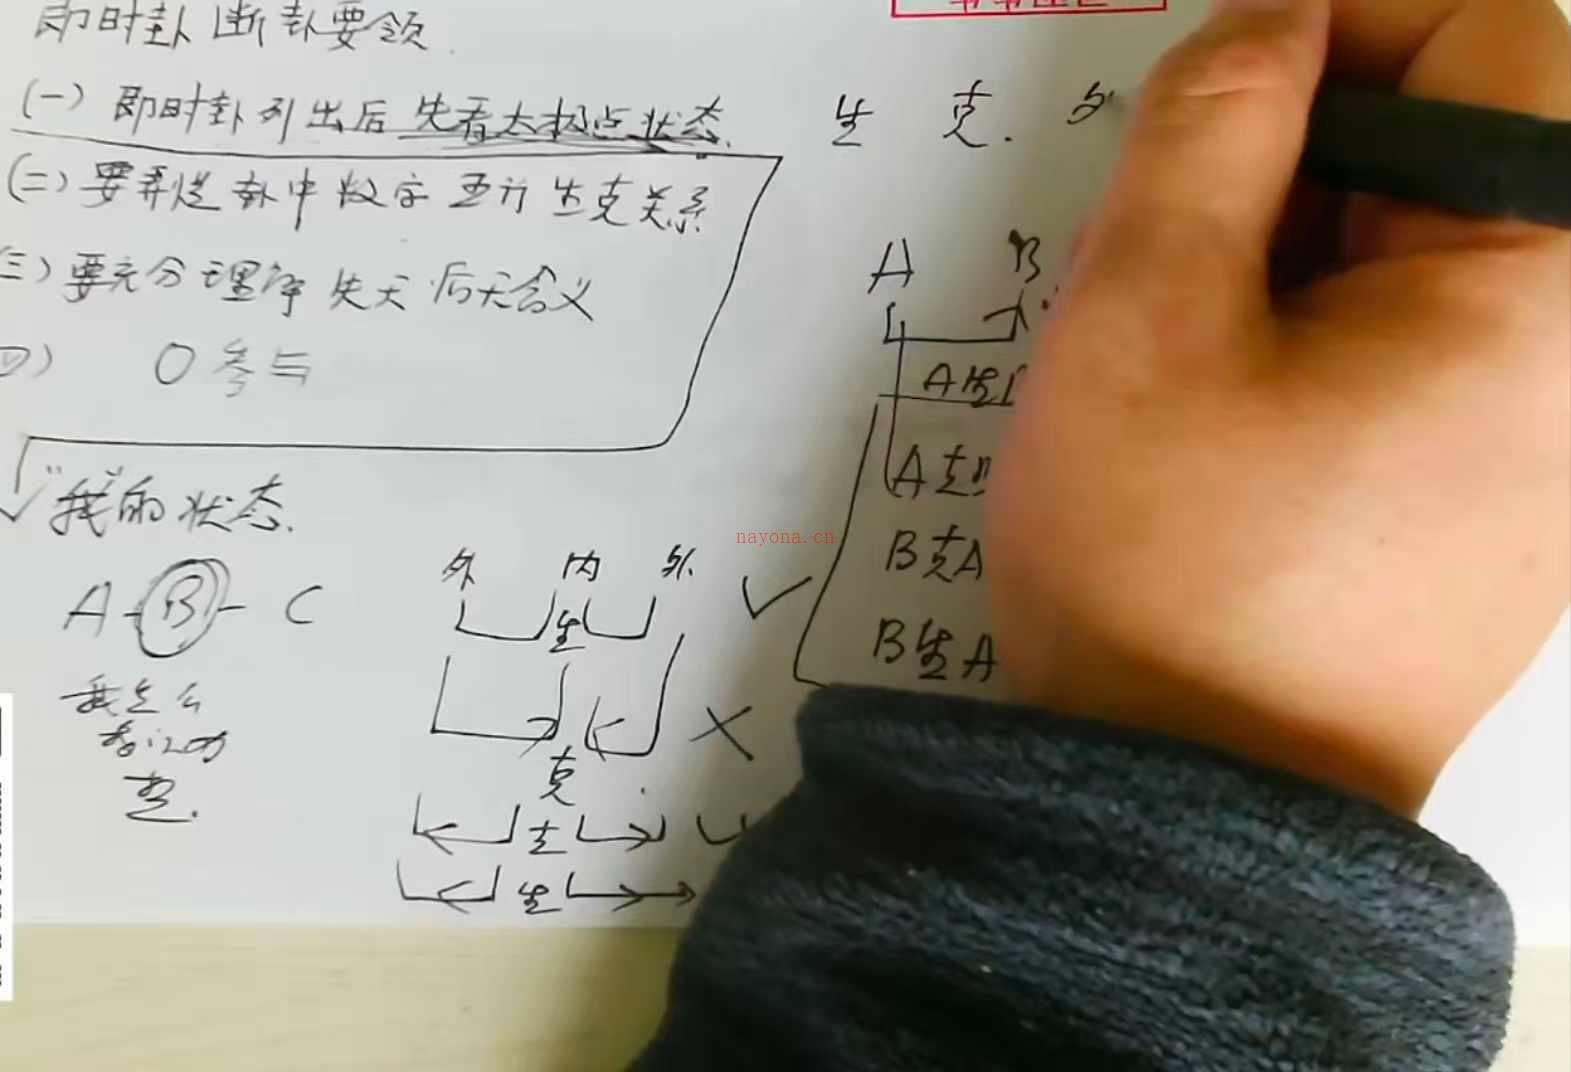 即时卦断卦要领
(一) 即时卦列出后先看太极点状态.
(二) 要弄懂卦中数字五行生克关系
(三) 要充分理解先天后天含义
0 参与
"我"的状态.
A - B - C
外 内 外
生
克
克
生
生 克.
A B
A生
A克
B克A
B生A
nayona.cn